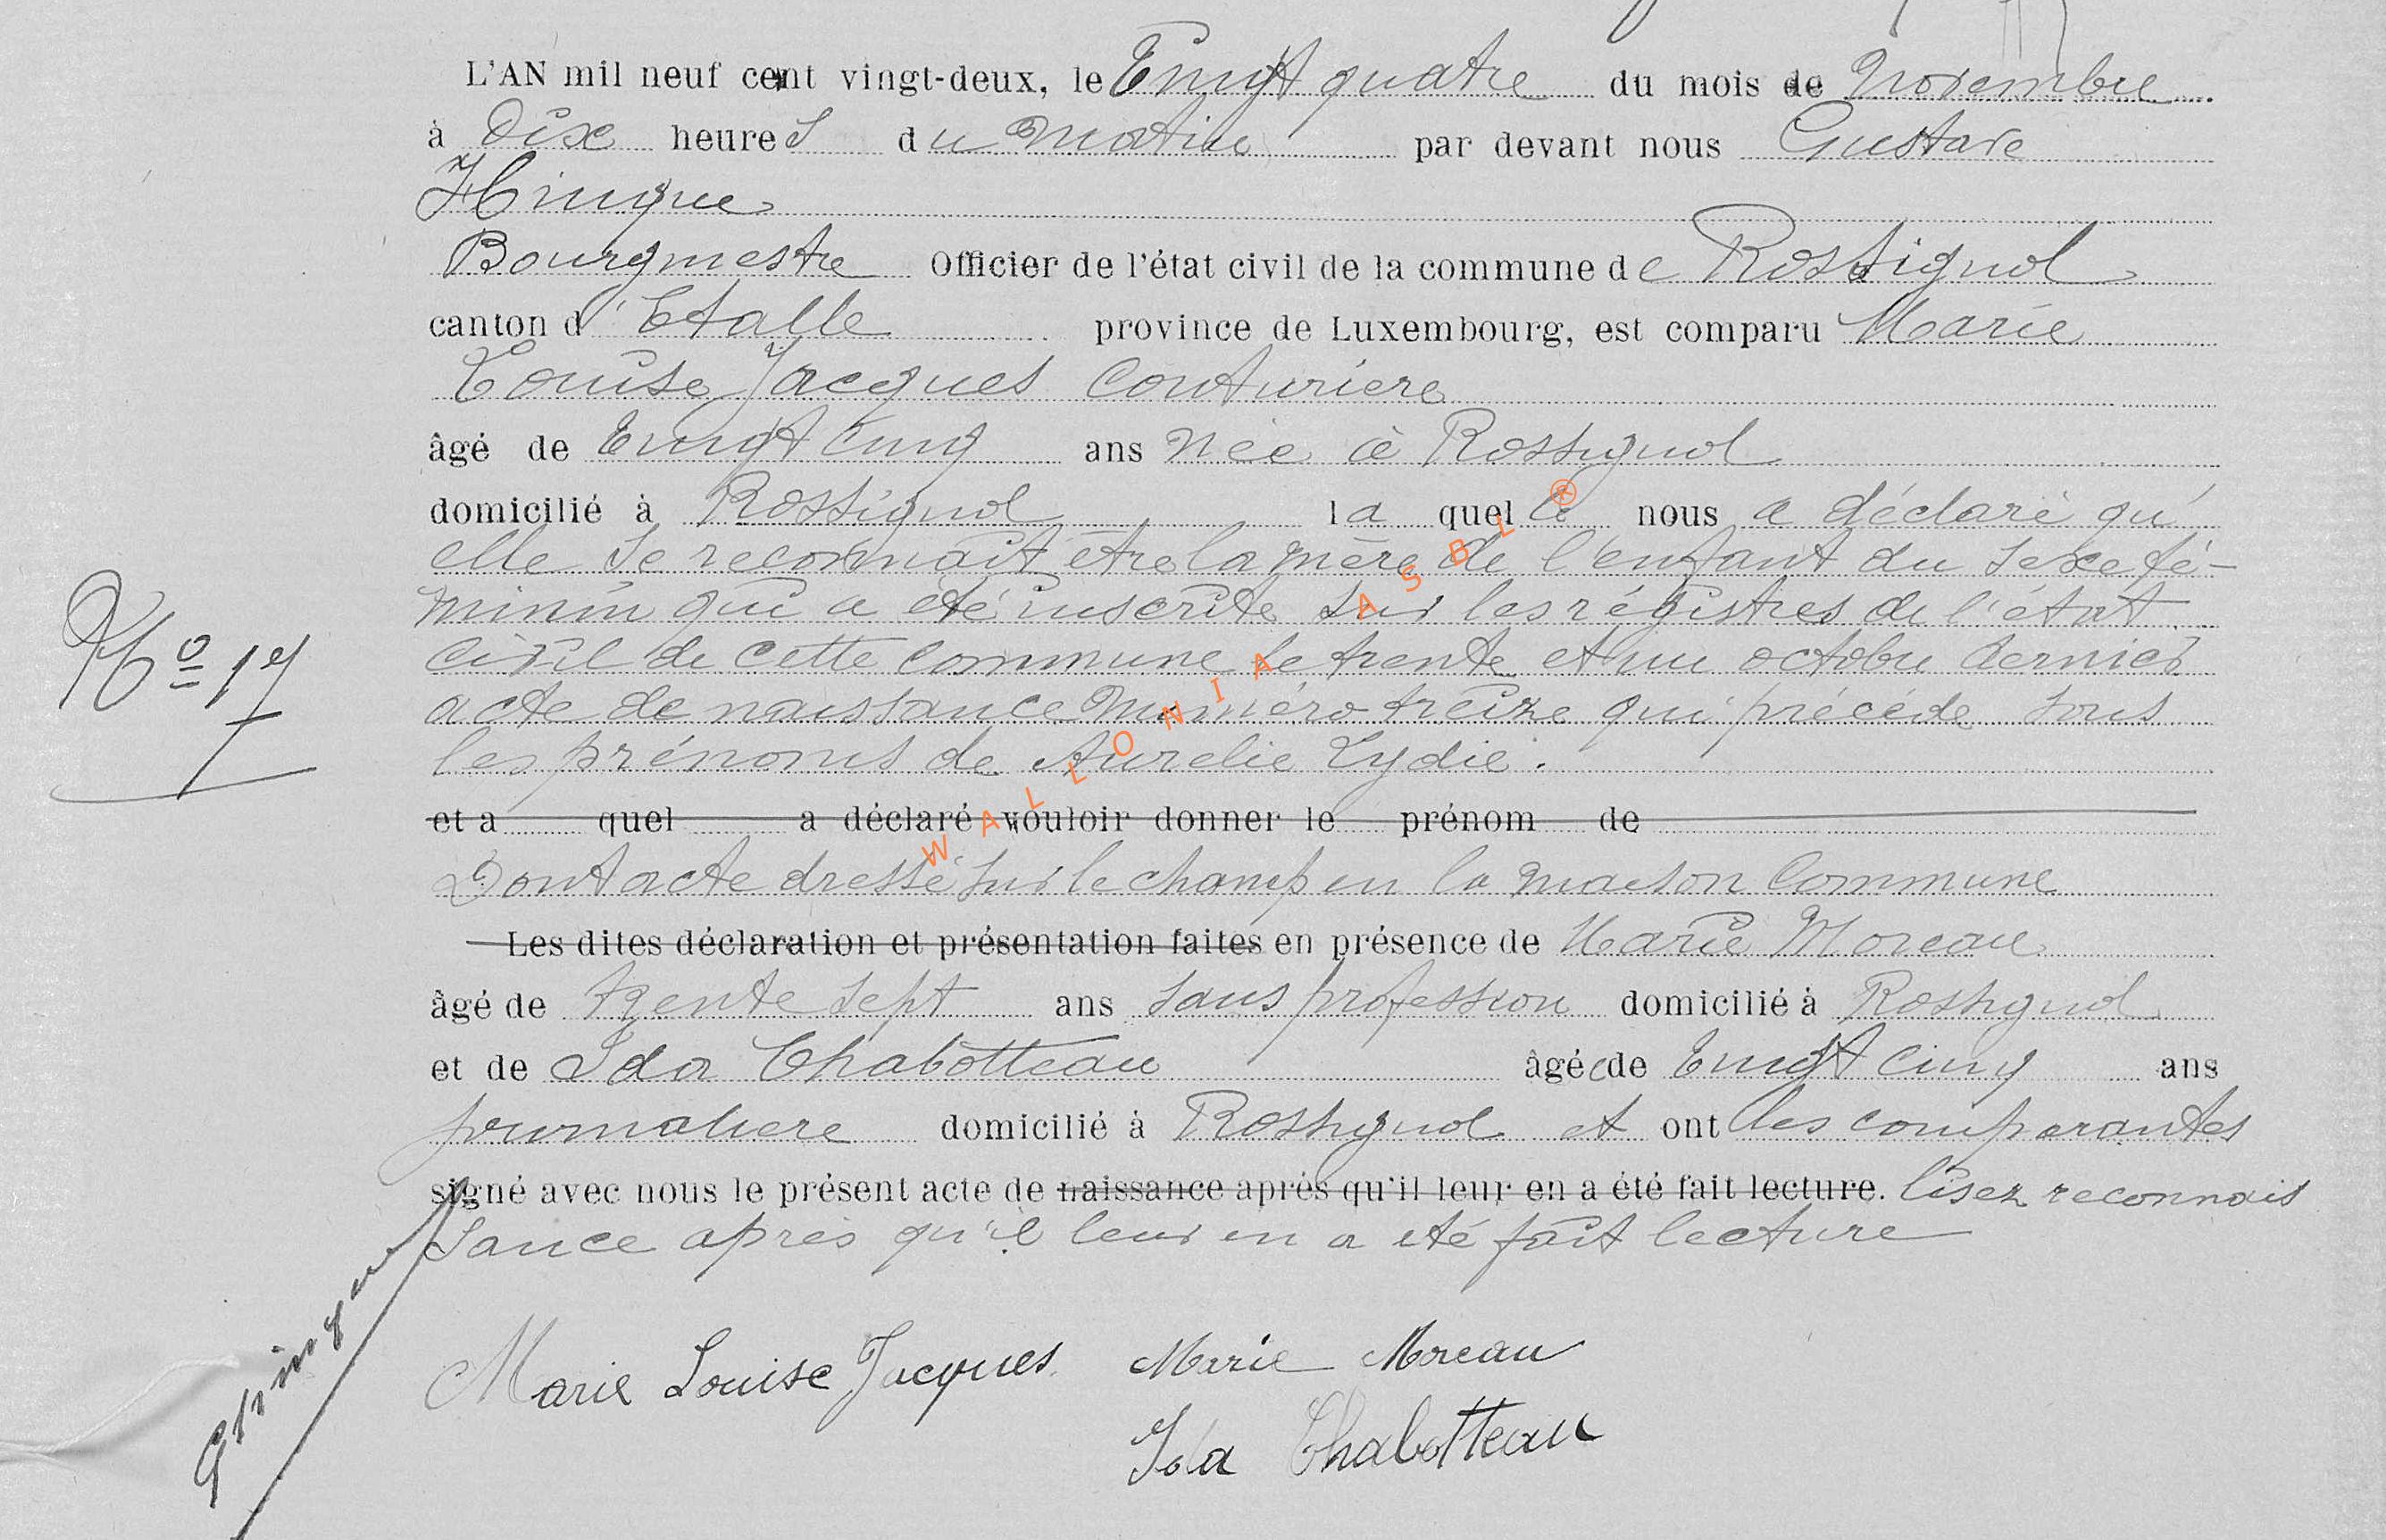 L'AN mil neuf cent vingt-deux, le Vingt quatre du mois de Novembre
à Dix heures du Matin par devant nous Gustave
Hinque
Bourgmestre Officier de l'état civil de la commune de Rossignol
canton d'Etalle province de Luxembourg, est comparu Marie
Louise Jacques Couturière
âgé de Vingt cinq ans née à Rossignol
domicilié à Rossignol la quelle nous a déclaré qu'
elle se reconnait être la mère de l'enfant du sexe fé-
minin qui a été inscrite sur les régistres de l'état
civil de cette commune le trente et un octobre dernier
acte de naissance numéro treize qui précéde sous
les prénoms de Aurelie Lydie.
N° 17
et a quel a déclaré vouloir donner le prénom de
Dont acte dressé sur le champ en la maison Commune
Les dites déclaration et présentation faites en présence de Marie Moreau
âgé de trente sept ans sans profession domicilié à Rossignol
et de Ida Chabotteau âgée de Vingt cinq ans
journalière domicilié à Rossignol et ont les comparantes
signé avec nous le présent acte de naissance après qu'il leur en a été fait lecture. lisez reconnais
sance après qu'il leur en a été fait lecture
Marie Louise Jacques Marie Moreau
Ida Chabotteau
GHinque
WALLONIA ASBL ®